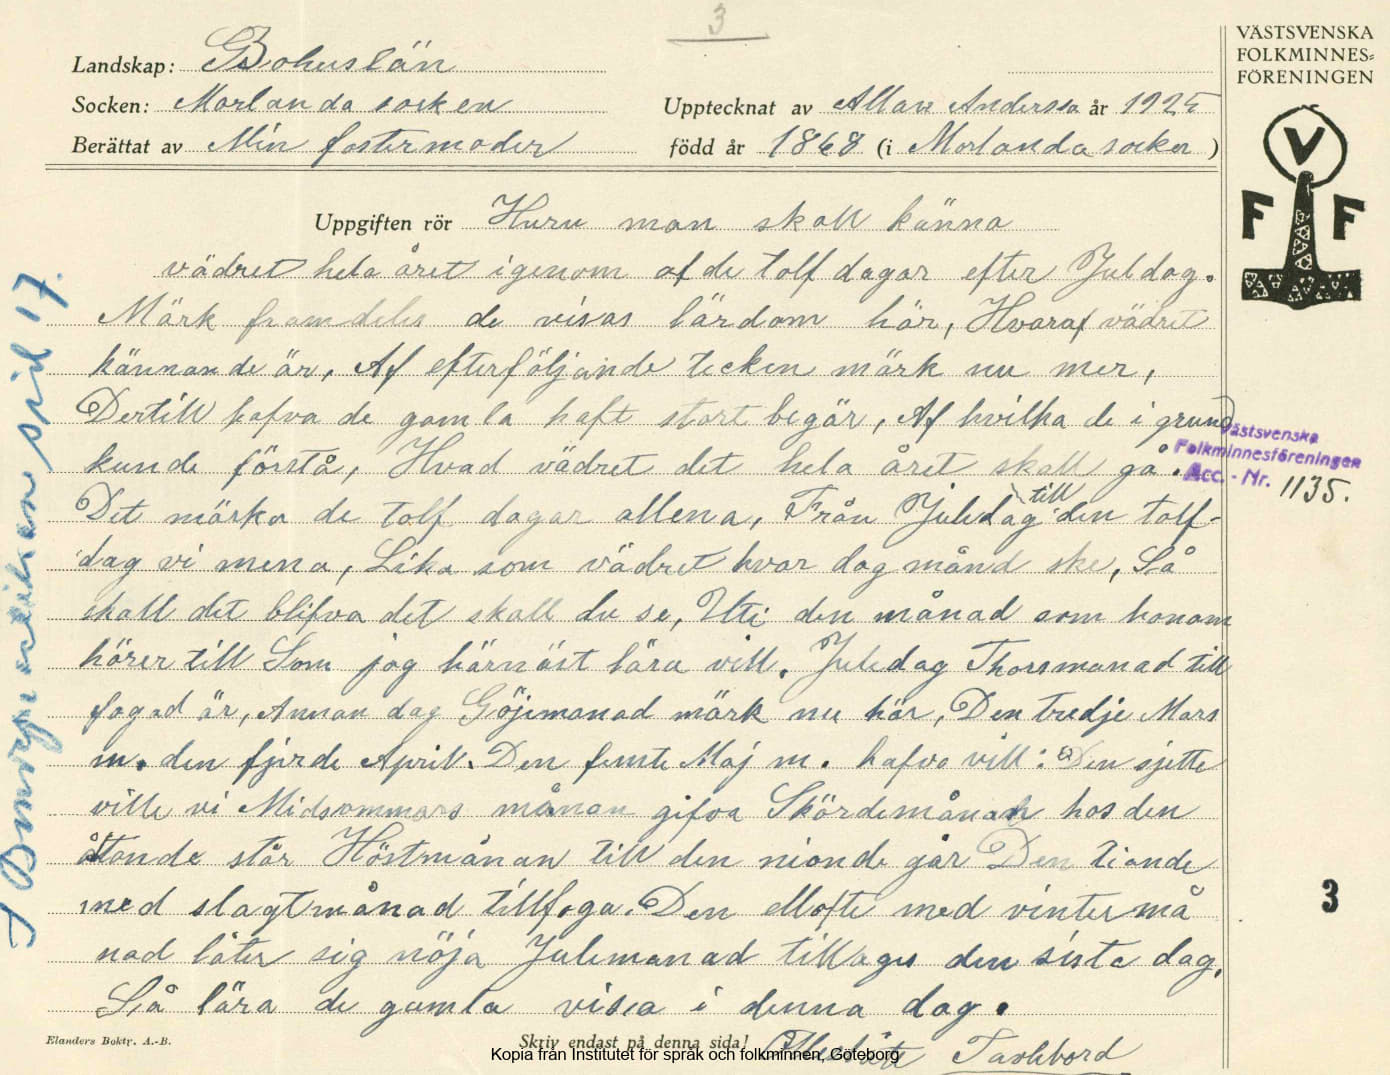 3
VÄSTSVENSKA
FOLKMINNES=
FÖRENINGEN
V
F F
Landskap: Bohuslän
Socken: Morlanda socken
Upptecknat av Allan Anderson år 1925
Berättat av Min fostermoder
född år 1868 (i Morlanda socken )
Uppgiften rör Huru man skall känna
vädret hela året igenom af de tolf dagar efter Juldag.
Märk framdeles de visas lärdom här, Hvaraf vädret
kännande är, Af efterföljande tecken märk nu mer,
Dertill hafva de gamla haft stort begär, Af hvilka de i grund
kunde förstå, Hvad vädret det hela året skall gå.
Det märka de tolf dagar allena, Från Juledag till den tolf-
dag vi mena, Lika som vädret hvar dag månd ske, Så
skall det blifva det skall du se, Uti den månad som honom
hörer till Som jag härnäst lära vill. Juledag Thorsmanad till
fogad är, Annan dag Göjemanad märk nu här, Den tredje Mars
m. den fjerde April. Den femte Maj m. hafva vill: Den sjette
ville vi Midsommars månan gifva Skördemånan hos den
åttonde står Höstmånan till den nionde går Den tionde
med slagtmånad tillfoga. Den ellofte med vintermå
nad låter sig nöja Julemanad tillages den sista dag,
Så lära de gamla visa i denna dag.
Västsvenska
Folkminnesföreningen
Acc. - Nr. 1135.
3
Elanders Boktr. A.-B.
Skriv endast på denna sida!
Kopia från Institutet för språk och folkminnen, Göteborg